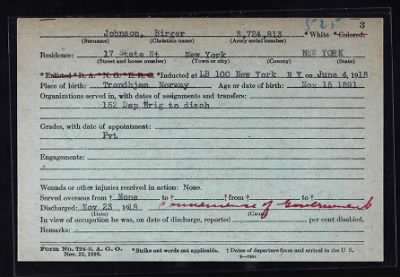 525 3
Johnson, Birger 3,724,813 *White *Colored.
(Surname) (Christian name) (Army serial number)
Residence: 17 State St New York NEW YORK
(Street and house number) (Town or city) (County) (State)
*Enlisted *R. A. *N. G. *E. R. C. *Inducted at LB 100 New York N Y on June 4, 1918
Place of birth: Trondhjem Norway Age or date of birth: Nov 15 1891
Organizations served in, with dates of assignments and transfers:
152 Dep Brig to disch
Grades, with date of appointment:
Pvt
Engagements:
Wounds or other injuries received in action: None.
Served overseas from † None to † † from † to †
Discharged: Nov 23 1918 Convenience of Government
(Date) (Cause)
In view of occupation he was, on date of discharge, reported per cent disabled.
Remarks:
Form No. 724-2, A. G. O. *Strike out words not applicable. † Dates of departure from and arrival in the U. S.
Nov. 22, 1919.